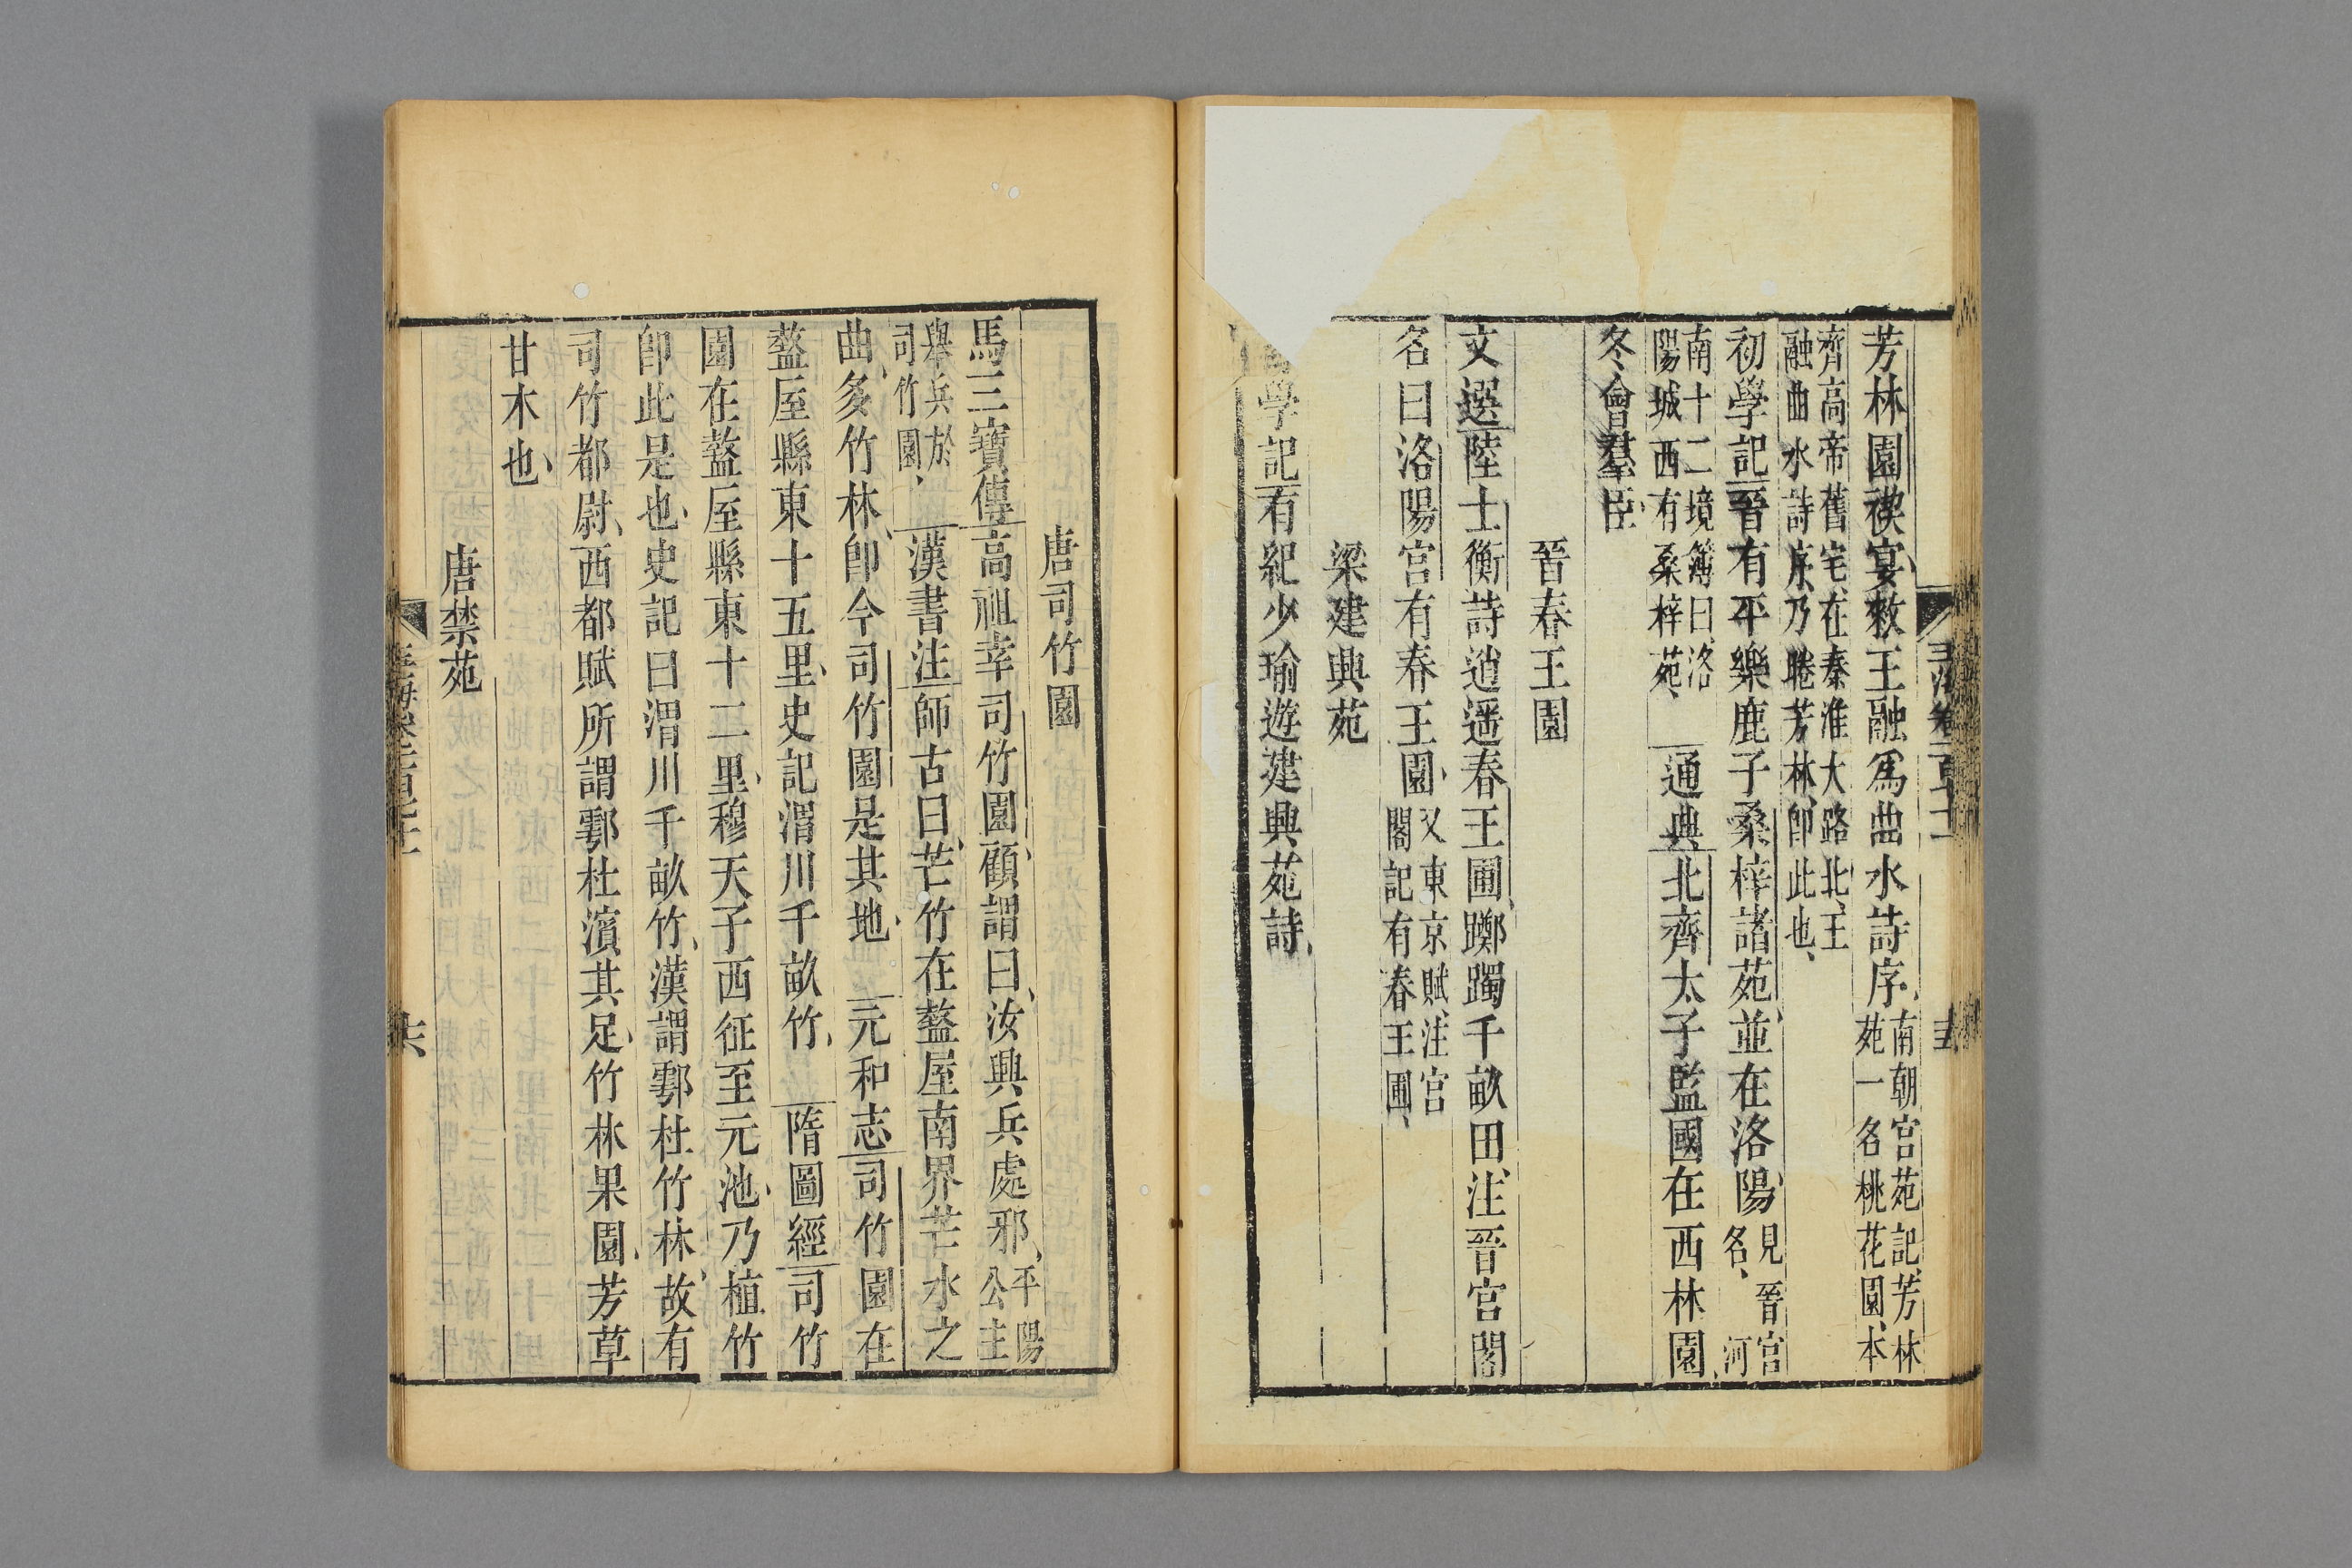 芳林園禊宴敕王融爲曲水詩序南朝宮苑記芳林
苑一名桃花園本
齊高帝舊宅在秦淮大路北王
融曲水詩序乃睠芳林卽此也
初學記晉有平樂鹿子桑梓諸苑並在洛陽見晉宮
名河
南十二境簿曰洛
陽城西有桑梓苑通典北齊太子監國在西林園
冬會羣臣
晉春王園
文選陸士衡詩逍遥春王圃躑躅千畝田注晉宮閣
名曰洛陽宮有春王園又東京賦注宮
閣記有春王圃
梁建興苑
學記有紀少瑜遊建興苑詩
唐司竹園
馬三寶傳高祖幸司竹園顧謂曰汝興兵處邪平陽
公主
舉兵於
司竹園漢書注師古曰芒竹在盩厔南界芒水之
曲多竹林卽今司竹園是其地元和志司竹園在
盩厔縣東十五里史記渭川千畝竹隋圖經司竹
園在盩厔縣東十二里穆天子西征至元池乃植竹
卽此是也史記曰渭川千畝竹漢謂鄠杜竹林故有
司竹都尉西都賦所謂鄠杜濱其足竹林果園芳草
甘木也
唐禁苑